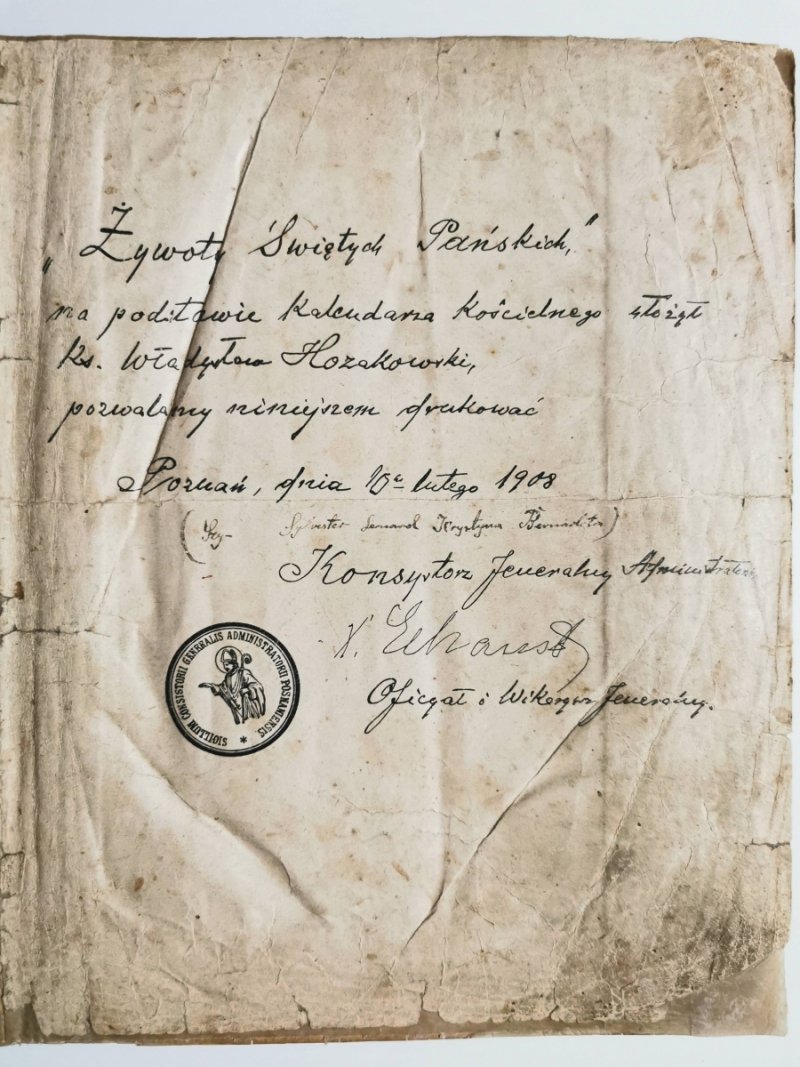 „Żywoty Świętych Pańskich,"
na podstawie Kalendarza Kościelnego złożył
Ks. Władysław Hozakowski,
pozwalamy niniejszem drukować
Poznań, dnia 10º lutego 1908
Sylvester Krystyna Bernadeta)
Konsystorz Jeneralny Administratorski
X. Echaust
Oficyał i Wikaryusz Jeneralny.
SIGILLUM CONSISTORII GENERALIS ADMINISTRATORII POSNANIENSIS. *